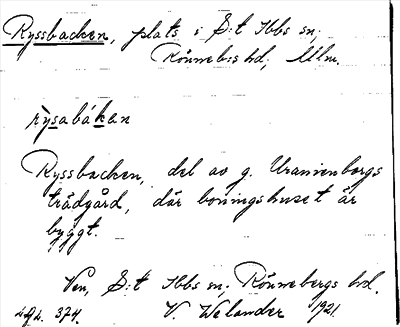 Ryssbacken, plats i S:t Ibbs sn;
Rönneb:s hd; Mlm.
rysabákan
Ryssbacken, del av g. Uranienborgs
trädgård, där boningshuset är
byggt.
Ven, S:t Ibbs sn; Rönnebergs hd.
374. V. Welander 1921